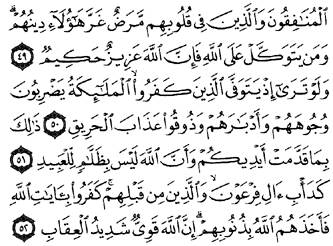 ٱلْمُنَٰفِقُونَ وَٱلَّذِينَ فِى قُلُوبِهِم مَّرَضٌ غَرَّ هَٰٓؤُلَآءِ دِينُهُمْ ۗ
وَمَن يَتَوَكَّلْ عَلَى ٱللَّهِ فَإِنَّ ٱللَّهَ عَزِيزٌ حَكِيمٌ ٤٩
وَلَوْ تَرَىٰٓ إِذْ يَتَوَفَّى ٱلَّذِينَ كَفَرُوا۟ ۙ ٱلْمَلَٰٓئِكَةُ يَضْرِبُونَ
وُجُوهَهُمْ وَأَدْبَٰرَهُمْ وَذُوقُوا۟ عَذَابَ ٱلْحَرِيقِ ٥٠ ذَٰلِكَ
بِمَا قَدَّمَتْ أَيْدِيكُمْ وَأَنَّ ٱللَّهَ لَيْسَ بِظَلَّٰمٍ لِّلْعَبِيدِ ٥١
كَدَأْبِ ءَالِ فِرْعَوْنَ ۙ وَٱلَّذِينَ مِن قَبْلِهِمْ ۚ كَفَرُوا۟ بِـَٔايَٰتِ ٱللَّهِ
فَأَخَذَهُمُ ٱللَّهُ بِذُنُوبِهِمْ ۗ إِنَّ ٱللَّهَ قَوِىٌّ شَدِيدُ ٱلْعِقَابِ ٥٢